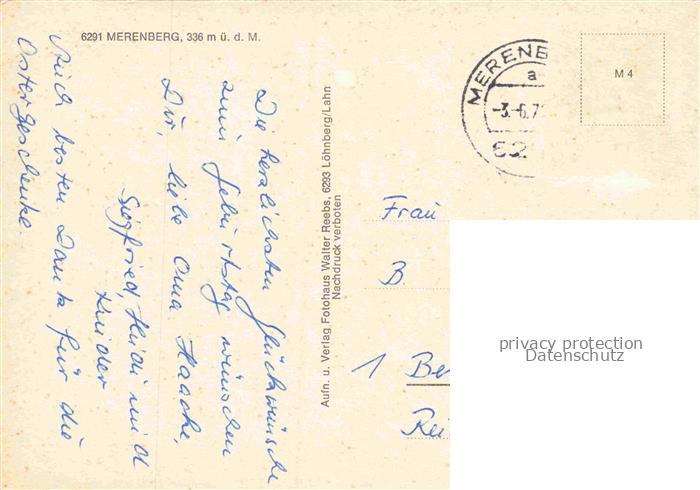 6291 MERENBERG, 336 m ü. d. M.
Die herzlichsten Glückwünsche
zum Geburtstag wünschen
Dir, liebe Oma Haacke,
Siegfried, Heidi und
Kinder
Auch besten Dank für die
Ostergeschenke.
Aufn. u. Verlag Fotohaus Walter Reebs, 6293 Löhnberg/Lahn
Nachdruck verboten
MERENB
a
-3.-6.7
62
M 4
Frau
B.
1 Be
privacy protection
Datenschutz